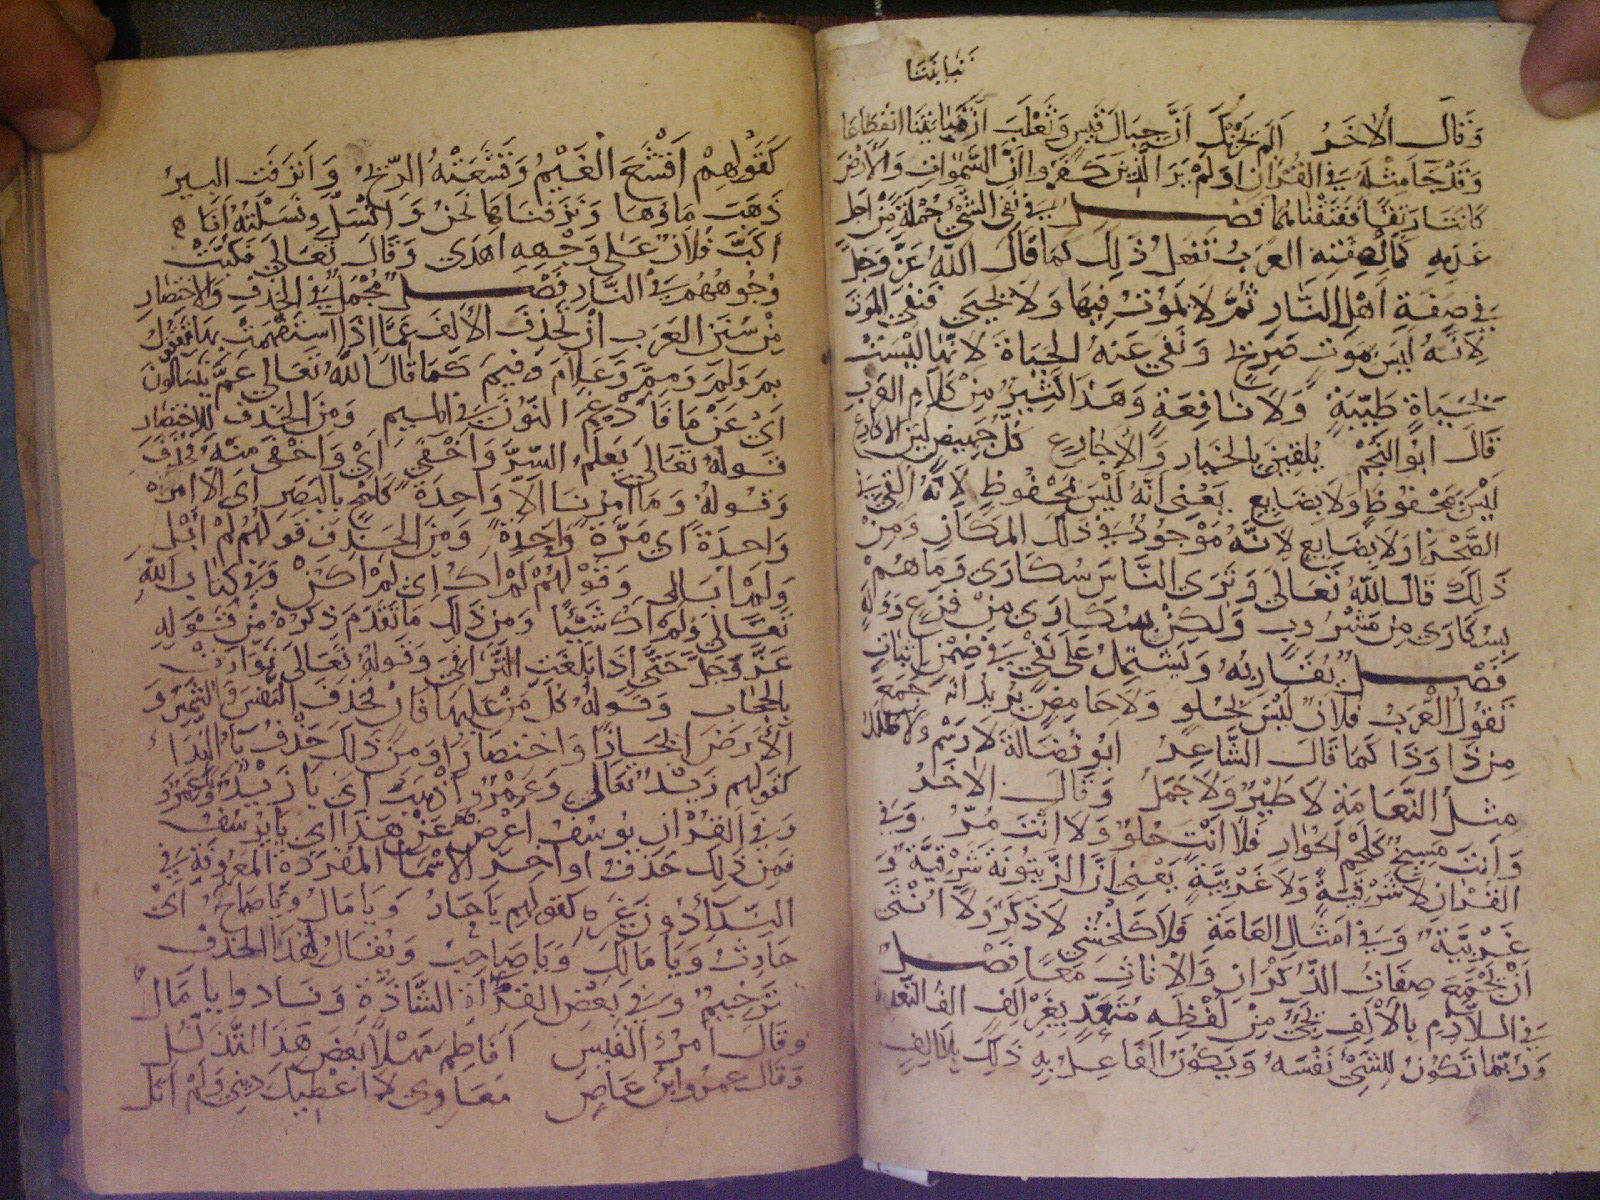 تباينتا
وَقَالَ الْاخَرُ الَم يَحْزُنْكَ اَنَّ حِبَالَ قَيْسٍ وَتَغْلِبَ قد تَبَايَنَتَا انْقِطَاعَا
وَقَدْ جَا مِثْلُهُ فِي الْقُرْانِ اوَلَمْ يَرَ الَّذِينَ كَفَرُوا اَنَّ السَّمٰوَاتِ وَالْاَرْضَ
كَانَتَا رَتْقًا فَفَتَقْنَاهُمَا فَصْل فِي نَفْيِ الشَّيْءِ جُمْلَةً مِّنْ اَجْلِ
عَدَمِهِ كَمَالَ صِفَتِه العَرَبُ تَفْعَلُ ذَلِكَ كَمَا قَالَ اللّٰهُ عَزَّ وَجَلَّ
فِي صِفَةِ اَهْلِ النَّارِ ثُمَّ لَا يَمُوْتُ فِيهَا وَلَا يَحْيَى فَنَفِيَ الْمَوْتَ
لِاَنَّهُ لَيْسَ بِمَوْتٍ صَرِيْحٍ وَنَفَي عَنْهُ الْحَيَاةَ لِاَنَّهَا لَيْسَتْ
بِحَيَاةٍ طَيِّبَةٍ وَلَا نَافِعَةٍ وَهَذَا كَثِيْرٌ مِنْ كَلَامِ العَرَبِ
قَالَ ابُو النَّجْمِ يُلْقِيْنَ بِالخَبَارِ وَالْاَجَارِعِ كُلَّ جَهِيضٍ لَيِّنِ الْاَكَارِعِ
لَيْسَ بِمَحْفُوظٍ وَلَا بِضَايِعٍ يَعْنِي اَنَّهُ لَيْسَ بِمَحْفُوظٍ لِاَنَّهُ اُلْقِيَ فِي
الصَّحْرَا وَلَا بِضَايِعٍ لِاَنَّهُ مَوْجُوْدٌ فِي ذَلِكَ الْمَكَانِ وَمِنْ
ذَلِكَ قَالَ اللّٰهُ تَعَالَي وَتَرَى النَّاسَ سُكَارَى وَمَا هُمْ
بِسُكَارَى مِن مَشْرُوبٍ وَلَكِنْ سُكَارَى مِنْ فَزَعٍ وَوَلَهٍ
فَصْل يُقَارِبُهُ وَيَشْتَمِلُ عَلَى نَفْيٍ فِي ضِمْنِهِ اِثْبَاتٌ
تَقُوْلُ الْعَرَبُ فُلَانٌ لَيْسَ بِحُلْوٍ وَلَا حَامِضٍ يُرِيْدُ اَنَّهُ جَمَعَ
مِنْ ذَا وَذَا كَمَا قَالَ الشَّاعِرُ ابُو فُضَالَةَ لَا رَسْمٌ وَلَا طَلَلُ
مِثْلُ النَّعَامَةِ لَا طَيْرٌ وَلَا جَمَلُ وَقَالَ الْاخَرُ
وَاَنْتَ مَسِيخٌ كَلَحْمِ الْحُوَارِ فَلَا اَنْتَ حُلْوٌ وَلَا اَنْتَ مُرٌّ وَفِي
القُرْانِ لَا شَرْقِيَّةٍ وَلَا غَرْبِيَّةٍ يَعْنِي اَنَّ الزَّيْتُوْنَةَ شَرْقِيَّةٌ وَ
غَرْبِيَّةٌ وَفِي امْثَالِ العَامَّةِ فُلَانٌ كَالخُنْثَي لَا ذَكَرٌ وَلَا اُنْثَى
اَنْ يَجْمَعَ صِفَاتَ الذُّكْرَانِ وَالْانَاثِ مَعًا فَصْل
فِي اللَّازِمِ بِالْاَلِفِ يَجِيْ مِنْ لَفْظِهِ مُتَعَدٍّ بِغَيْرِ اَلِفٍ الفُ التَّعْدِ
وَرُبَّمَا تَكُوْنُ لِلشَّيْ نَفْسَهُ وَيَكُوْنُ الْفَاعِلُ بِهِ ذَلِكَ بِلَا اَلِفٍ
كَقَوْلِهِمْ اَقْشَعَ الْغَيْمُ وَقَشَعَتْهُ الرِّيْحُ وَاَنْزَفَتِ البِيرُ
ذَهَبَ مَاؤُهَا وَنَزَفْنَاهَا نَحْنُ وَانْسَلَ وَنَسَلْتُهُ اَنَا
اَكَبَّ فُلَانٌ عَلَى وَجْهِهِ اهْدَى وَقَالَ تَعَالَى فَكُبَّتْ
وُجُوْهُهُمْ فِي النَّارِ فَصْل مُجْمَلٌ فِي الْحَذْفِ وَالْاخْتِصَارِ
مِنْ سُنَنِ العَرَبِ اَنْ تَحْذِفَ الْاَلِفَ عَمَّا اِذَا اسْتَفْهَمَتْ بِهَا فَتَقُوْلُ
بِمَ وَلِمَ وَمِمَّ وَعَلَامَ وَفِيمَ كَمَا قَالَ اللّٰهُ تَعَالَى عَمَّ يَتَسَاءَلُونَ
اَيْ عَنْ مَا فَاَدْغَمَ النُّوْنَ فِي الْمِيْمِ وَمِنَ الْحَذْفِ لِلاخْتِصَارِ
قَوْلُهُ تَعَالَى يَعْلَمُ السِّرَّ وَاَخْفَي اَيْ وَاَخْفَى مِنْهُ فَحُذِفَ
وَقَوْلُهُ وَمَا اَمْرُنَا اِلَّا وَاحِدَةٌ كَلَمْحٍ بِالْبَصَرِ اَيْ اِلَّا اَمْرَةً
وَاحِدَةً اَيْ مَرَّةً وَاحِدَةً وَمِنَ الْحَذْفِ قَوْلُهُمْ لَمْ اُبَلْ
وَلَمْ ابَالِي وَقَوْلُهُمْ لَمْ اَكُ اَيْ لَمْ اَكُنْ وَفِي كِتَابِ اللّٰهِ
تَعَالَى وَلَمْ اَكُ شَيْئًا وَمِنْ ذَلِكَ مَا تَقَدَّمَ ذِكْرُهُ مِنْ قَوْلِهِ
عَزَّ وَجَلَّ حَتَّى اِذَا بَلَغَتِ التَّرَاقِيَ وَقَوْلُهُ تَعَالَى تَوَارَتْ
بِالْحِجَابِ وَقَوْلُهُ كُلُّ مَنْ عَلَيْهَا فَانٍ فَحَذَفَ النَّفْسَ وَالشَّمْسَ وَ
الْاَرْضَ اِيْجَازًا وَاخْتِصَارًا وَمِنْ ذَلِكَ حَذْفُ يَاءِ النِّدَاءِ
كَقَوْلِهِمْ زَيْدُ تَعَالَى وَعَمْرُو اِذْهَبْ اَيْ يَا زَيْدُ وَيَا عَمْرُو
وَفِي الْقُرْانِ يُوْسُفُ اَعْرِضْ عَنْ هَذَا اَيْ يَا يُوْسُفُ
وَمِنْ ذَلِكَ حَذْفُ اَوَاخِرِ الْاَسْمَاءِ الْمُفْرَدَةِ الْمَعْرُوفَةِ فِي
النِّدَاءِ دُوْنَ غَيْرِهِ كَقَوْلِهِمْ يَا حَارُ وَيَا مَالُ وَيَا صَاحِ اَيْ
حَارِثُ وَيَا مَالِكُ وَيَا صَاحِبُ وَيُقَالُ لِهَذَا الْحَذْفِ
تَرْخِيمٌ وَفِي بَعْضِ الْقِرْاَةِ الشَّاذَّةِ وَنَادَوا يَا مَالُ
وَقَالَ اَمْرُؤُ الْقَيْسِ اَفَاطِمَ مَهْلًا بَعْضَ هَذَا التَّدَلُّلِ
وَقَالَ عَمْرُو ابْنُ عَاصِ مُعَاوِيَ لَا اُعْطِيْكَ دِيْنِي وَلَمْ اَنَلْ